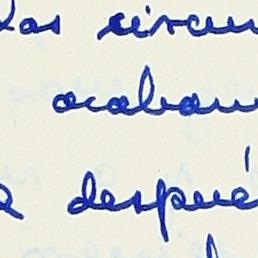 las circun
acaban
a despué